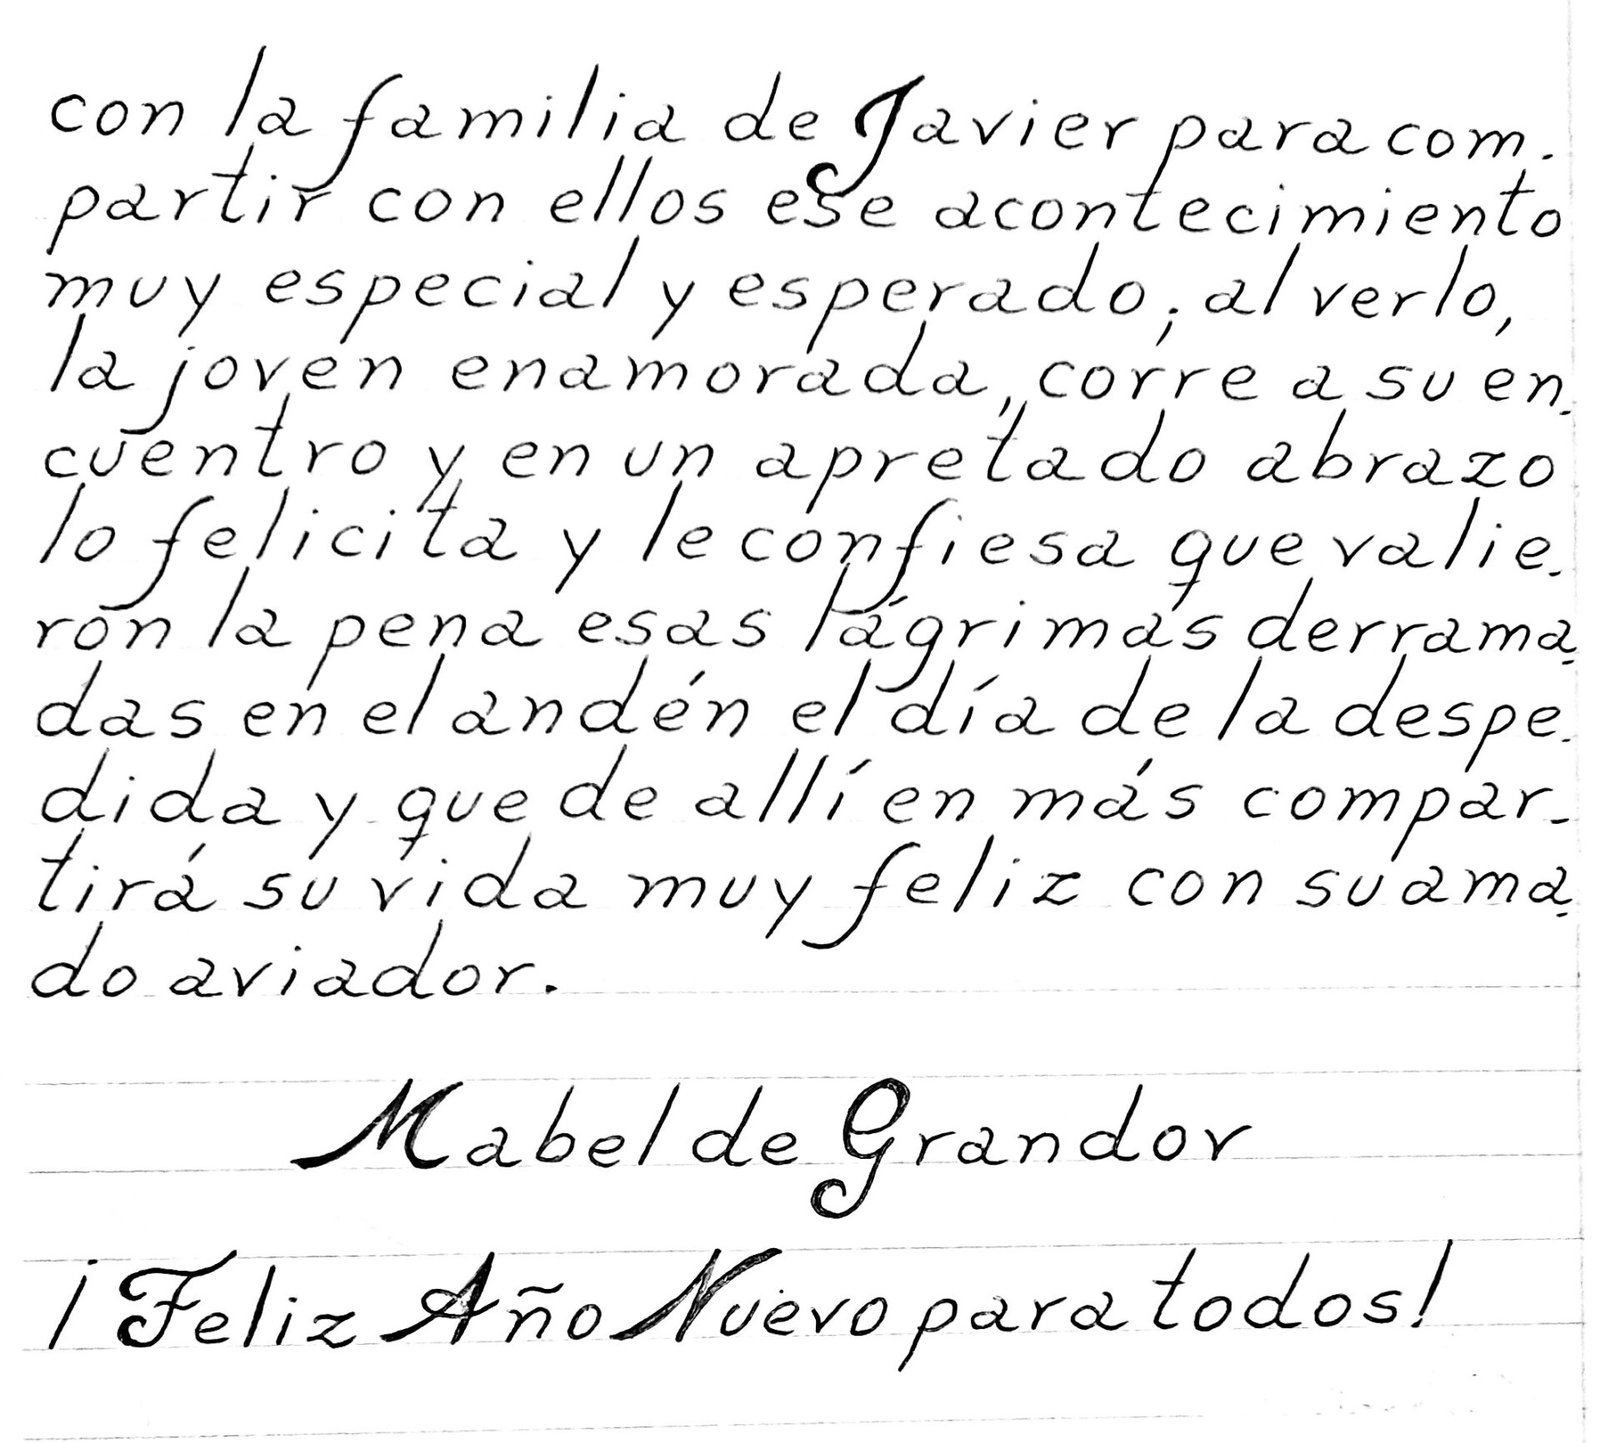 con la familia de Javier para com-
partir con ellos ese acontecimiento
muy especial y esperado; al verlo,
la joven enamorada, corre a su en-
cuentro y en un apretado abrazo
lo felicita y le confiesa que valie-
ron la pena esas lágrimas derrama-
das en el andén el día de la despe-
dida y que de allí en más compar-
tirá su vida muy feliz con su ama-
do aviador.
Mabel de Grandov
¡Feliz Año Nuevo para todos!